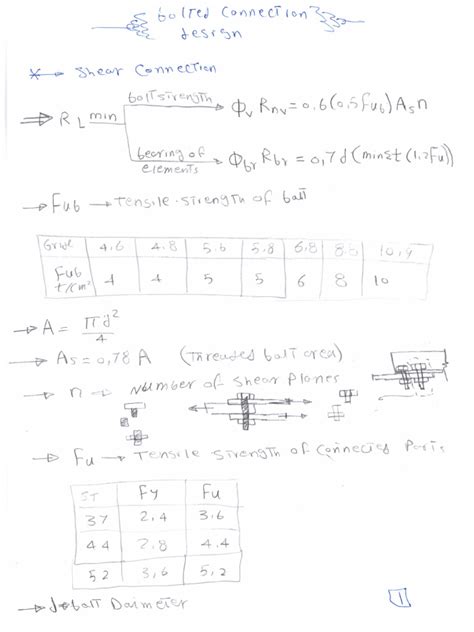 bolted connection
design
* → Shear Connection
⇒ RL min
bolt strength → Φv Rnv = 0,6 (0,5 Fub) As n
bearing of elements → Φbr Rbr = 0,7 d (min Σt (1,2 Fu))
→ Fub → Tensile strength of bolt
Grade 4,6 4.8 5,6 5,8 6,8 8,8 10,9
Fub t/cm² 4 4 5 5 6 8 10
→ A = πd²/4
→ As = 0,78 A (Threaded bolt area)
→ n → Number of Shear Planes
→ Fu → Tensile Strength of Connected Parts
ST Fy Fu
37 2,4 3.6
44 2.8 4.4
52 3,6 5,2
→ d → bolt Daimeter
1